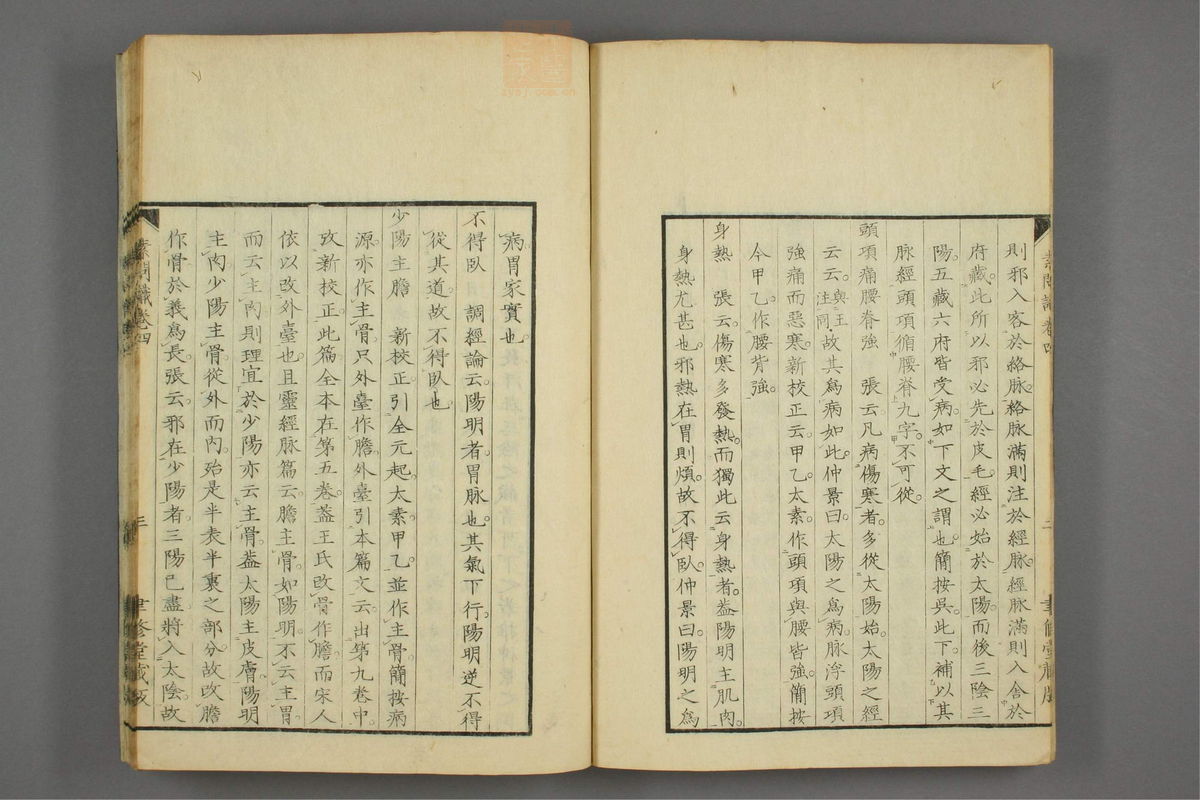 則邪入客於絡脉絡脉滿則注於經脉經脉滿則入舍於
府藏此所以邪必先於皮毛經必始於太陽而後三陰三
陽五藏六府皆受病如下文之謂也簡按吳此下補以其
脉經頭項循腰脊九字不可從
頭項痛腰脊強　張云凡病傷寒者多從太陽始太陽之經
云云與王注同故其爲病如此仲景曰太陽之爲病脉浮頭項
強痛而惡寒新校正云甲乙太素作頭項與腰皆強簡按
今甲乙作腰背強
身熱　張云傷寒多發熱而獨此云身熱者葢陽明主肌肉
身熱尤甚也邪熱在胃則煩故不得臥仲景曰陽明之爲
病胃家實也
不得臥　調經論云陽明者胃脉也其氣下行陽明逆不得
從其道故不得臥也
少陽主膽　新校正引全元起太素甲乙並作主骨簡按病
源亦作主骨只外臺作膽外臺引本篇文云出第九卷中
攷新校正此篇全本在第五卷葢王氏改骨作膽而宋人
依以改外臺也且靈經脉篇云膽主骨如陽明不云主胃
而云主肉則理宜於少陽亦云主骨葢太陽主皮膚陽明
主肉少陽主骨從外而內殆是半表半裏之部分故改膽
作骨於義爲長張云邪在少陽者三陽已盡將入太陰故
素問識卷四
三
聿修堂藏版